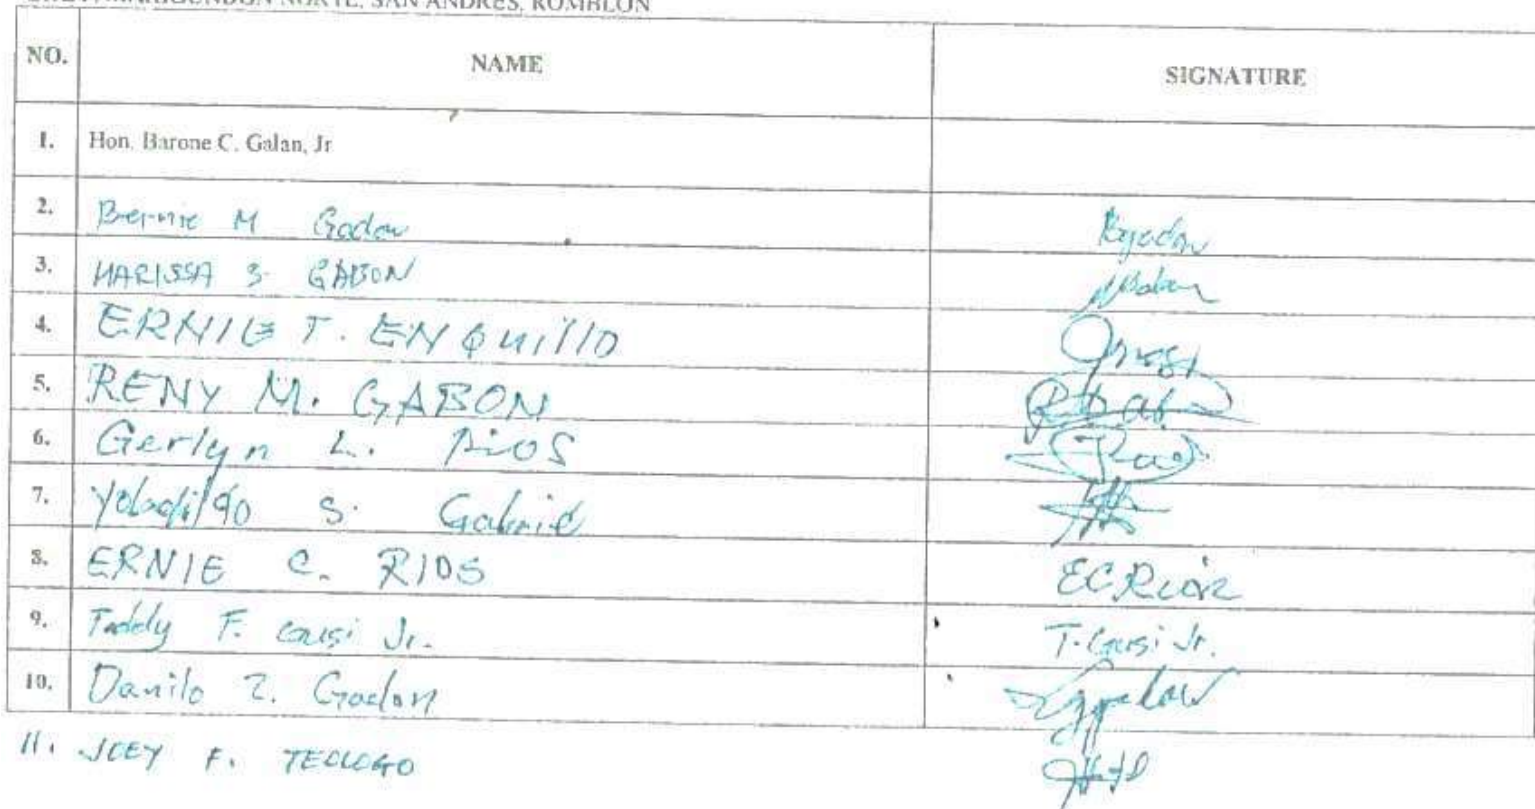 MARIGONDON NORTE, SAN ANDRES, ROMBLON
NO. NAME SIGNATURE
1. Hon. Barone C. Galan, Jr
2. Bernie M Gadon
3. MARISSA S. GABON
4. ERNIE T. ENQUillO
5. RENY M. GABON
6. Gerlyn L. RioS
7. S. Gabriel
8. ERNIE C. RIOS ECRios
9. Teddy F. Gusi Jr. T. Gusi Jr.
10. Danilo Z. Gadon
11. JOEY F. TEOLOGO